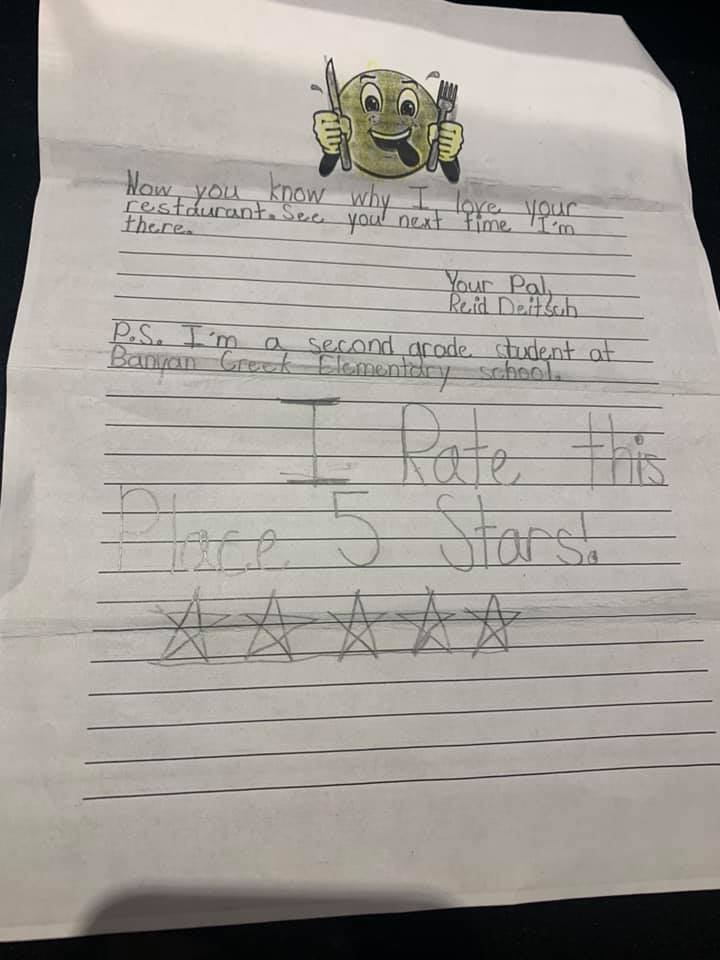 Now you know why I love your
restaurant. See you next time I'm
there.
Your Pal,
Reid Deitsch
P.S. I'm a second grade student at
Banyan Creek Elementary school.
I Rate this
Place 5 Stars!